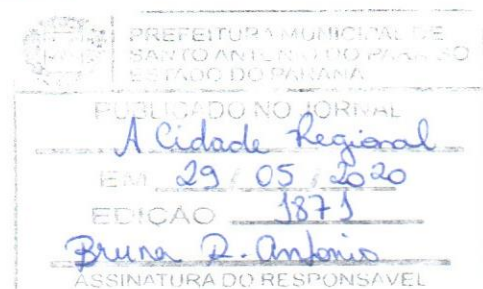 PREFEITURA MUNICIPAL DE
SANTO ANTONIO DO PARAISO
ESTADO DO PARANÁ
PUBLICADO NO JORNAL
A Cidade Regional
EM 29 / 05 / 2020
EDIÇÃO 1871
Bruna R. Antonio
ASSINATURA DO RESPONSÁVEL